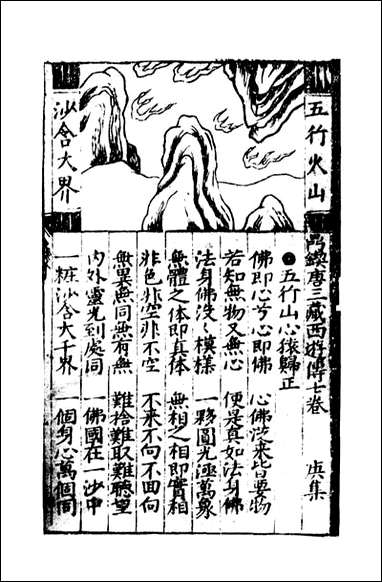 五行火山
沙含大界
鼎鍥唐三藏西遊傳七卷　庚集
●五行山心猿歸正
佛即心兮心即佛　心佛從來皆要物
若知無物又無心　便是真如法身佛
法身佛沒〻模樣　一顆圓光涵萬象
無體之体即真体　無相之相即實相
非色非空非不空　不来不向不囬向
無異無同無有無　難捨難取難聽望
內外靈光到處同　一佛國在一沙中
一粒沙含大千界　一個身心萬個同